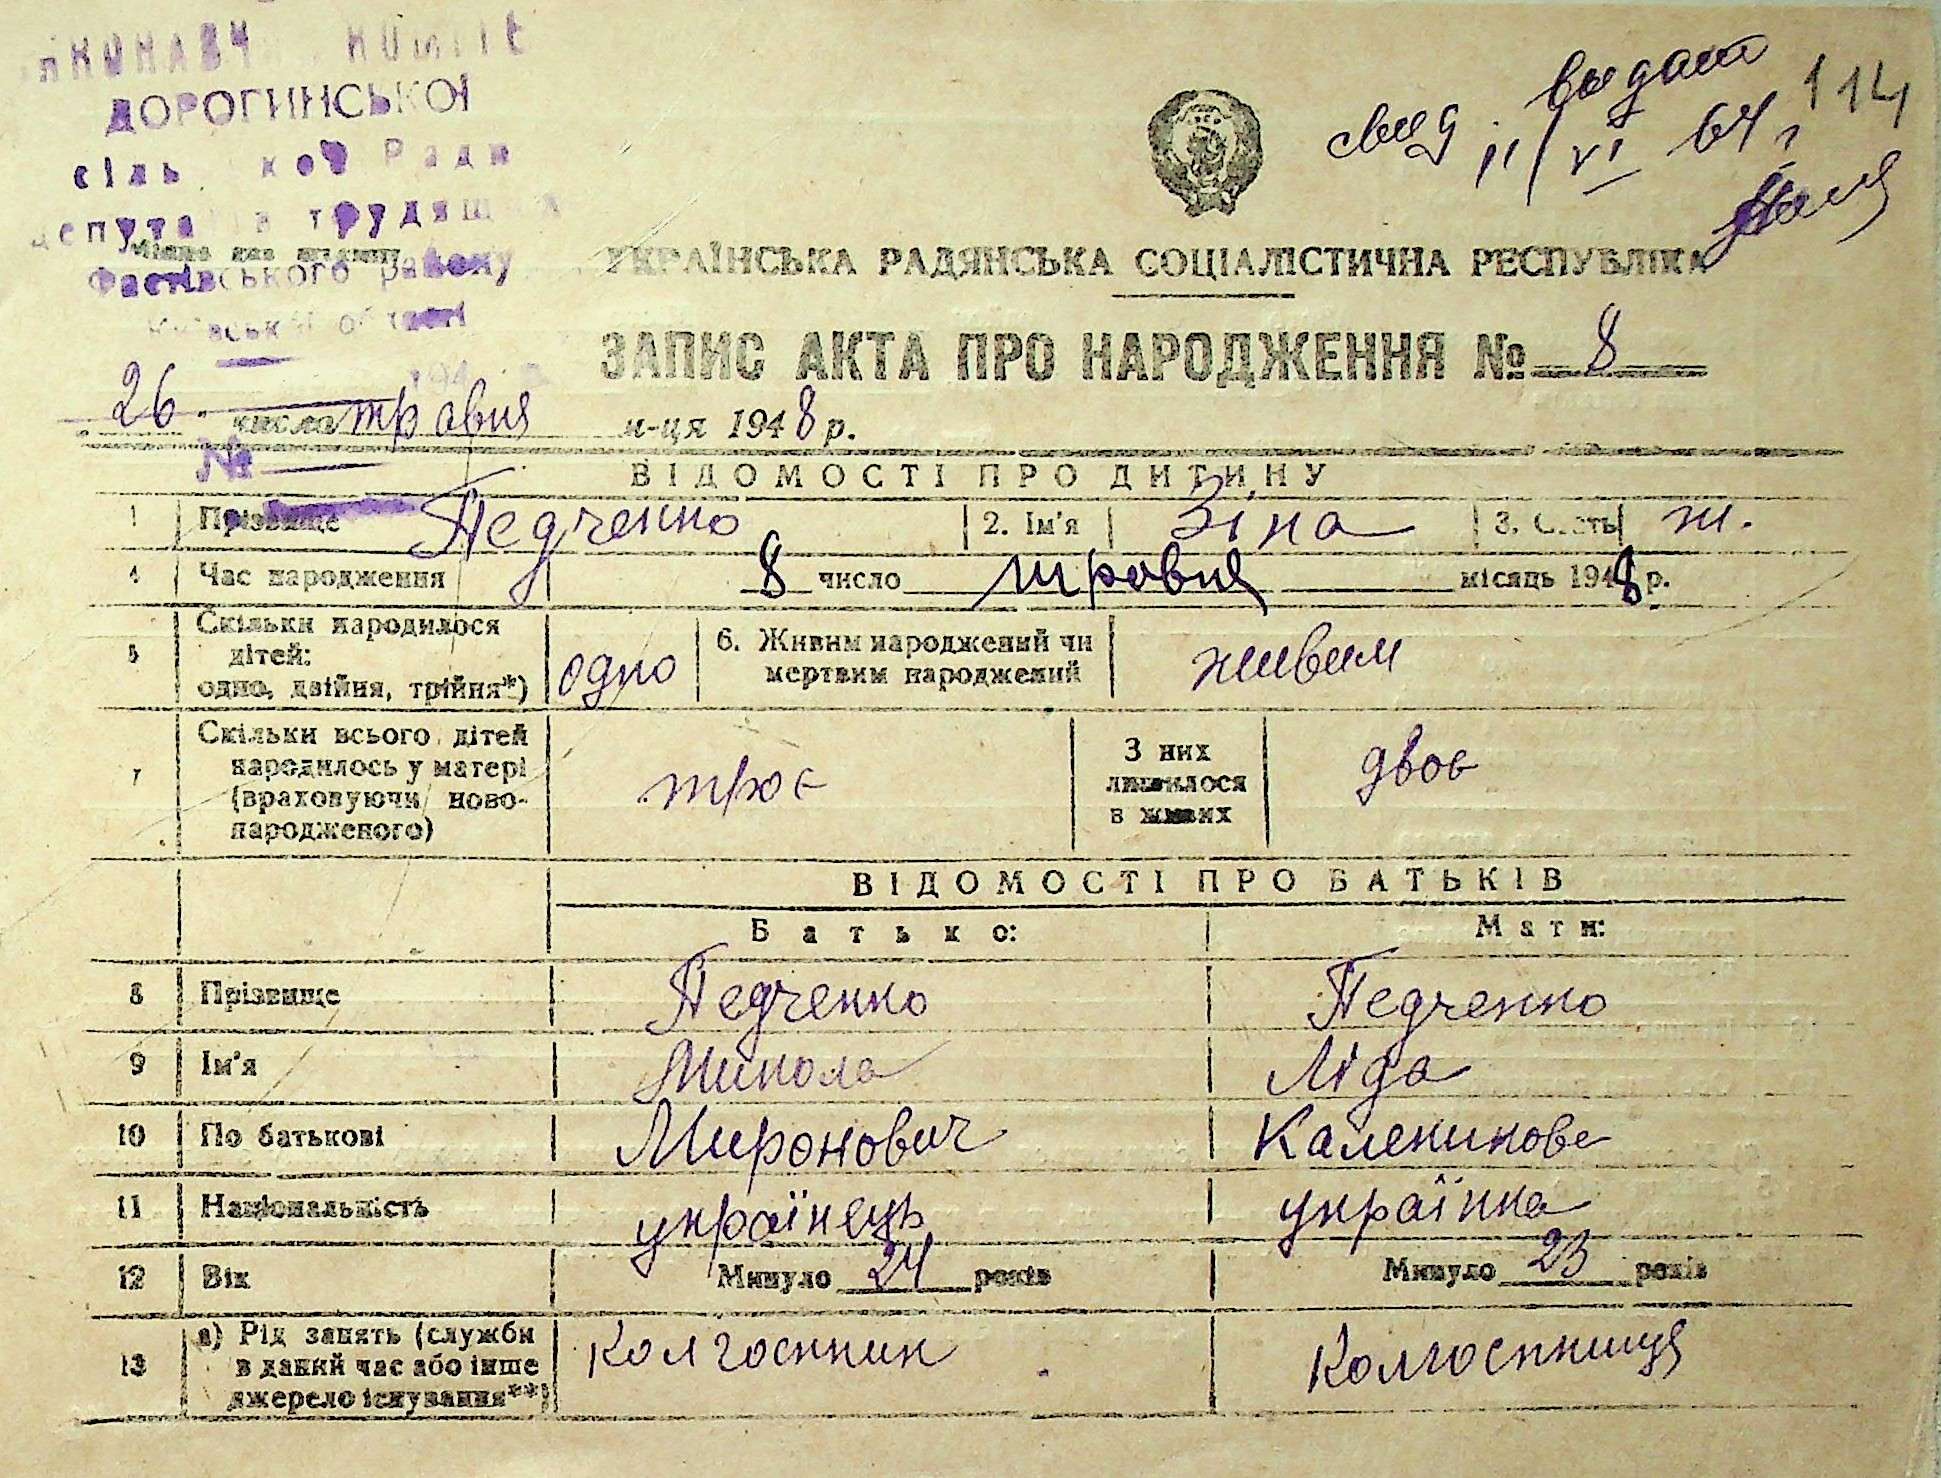 ДОРОГИНСЬКОЇ
Ради
Фастівського району
свид. видат 114
11/VI 64 г.
УКРАЇНСЬКА РАДЯНСЬКА СОЦІАЛІСТИЧНА РЕСПУБЛІКА
ЗАПИС АКТА ПРО НАРОДЖЕННЯ № 8
26 числа травня м-ця 1948 р.
№
ВІДОМОСТІ ПРО ДИТИНУ
1 Прізвище Педченко 2. Ім'я Зіна 3. Стать ж.
4 Час народження 8 число травня місяць 1948 р.
5 Скільки народилося
дітей:
одно, двійня, трійня*) одно 6. Живим народжений чи
мертвим народжений живим
7 Скільки всього дітей
народилось у матері
(враховуючи ново-
народженого) троє З них
лишилося
в живих двоє
ВІДОМОСТІ ПРО БАТЬКІВ
Батько: Мати:
8 Прізвище Педченко Педченко
9 Ім'я Микола Ліда
10 По батькові Миронович Калениковe
11 Національність українець українка
12 Вік Минуло 24 років Минуло 23 років
13 а) Рід занять (служби
в даний час або інше
джерело існування**) Колгоспник Колгоспниця